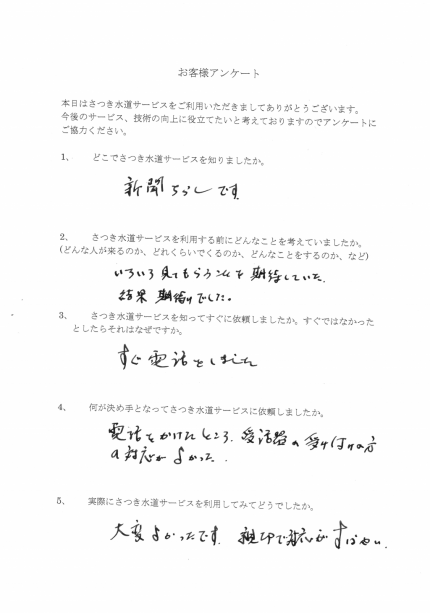 お客様アンケート
本日はさつき水道サービスをご利用いただきましてありがとうございます。
今後のサービス、技術の向上に役立てたいと考えておりますのでアンケートに
ご協力ください。
1、 どこでさつき水道サービスを知りましたか。
新聞ちらしです
2、 さつき水道サービスを利用する前にどんなことを考えていましたか。
(どんな人が来るのか、どれくらいでくるのか、どんなことをするのか、など)
いろいろ見てもらうことを期待していた。
結果 期待
でした。
3、 さつき水道サービスを知ってすぐに依頼しましたか。すぐではなかった
としたらそれはなぜですか。
すぐ電話をしました
4、 何が決め手となってさつき水道サービスに依頼しましたか。
電話をかけたところ、受話器の受け付けの方
の対応がよかった.
5、 実際にさつき水道サービスを利用してみてどうでしたか。
大変よかったです。 親切で対応がすばやい.